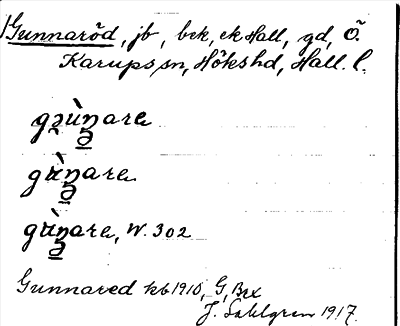 Gunnaröd, jb, bck, ck Hall, gd, Ö.
Karups sn, Höks hd, Hall. l.
gəùnare
gùnare
gùnare, W. 302
Gunnared kb 1910, G, Bex
J. Sahlgren 1917.